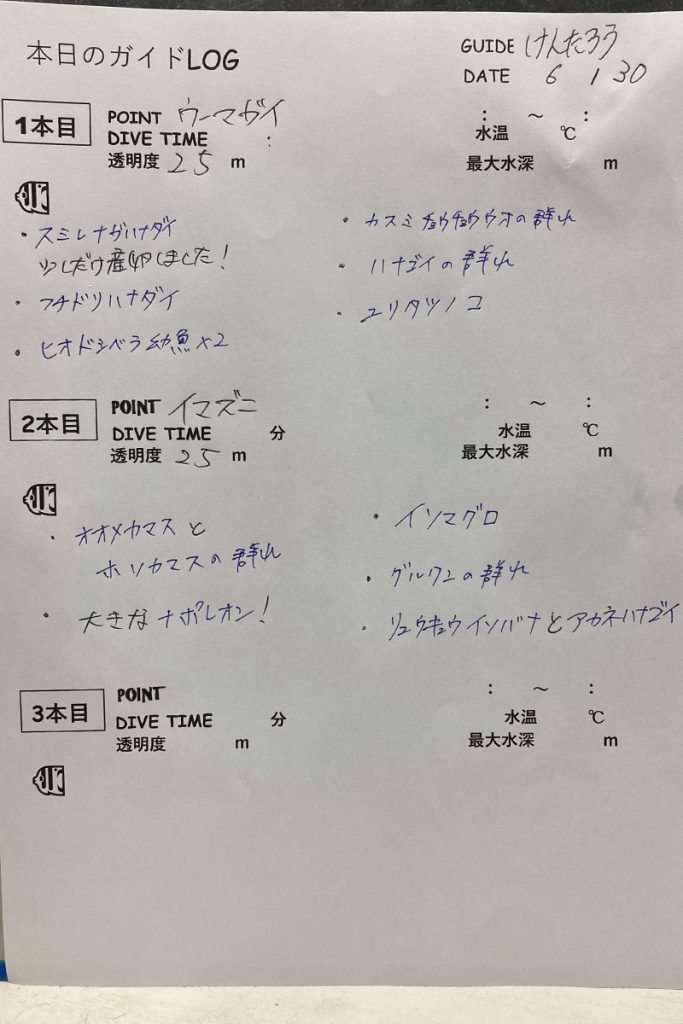 本日のガイドLOG
GUIDE けんたろう
DATE 6 1 30
1本目
POINT ウーマガイ
: ～ :
DIVE TIME :
水温 ℃
透明度 25 m
最大水深 m
・スミレナガハナダイ
少しだけ産卵しました!
・フチドリハナダイ
・ヒオドシベラ幼魚×2
・カスミチョウチョウウオの群れ
・ハナゴイの群れ
・ユリタツノコ
2本目
POINT イマズニ
: ～ :
DIVE TIME 分
水温 ℃
透明度 25 m
最大水深 m
・オオメカマスと
ホソカマスの群れ
・大きなナポレオン!
・イソマグロ
・グルクンの群れ
・リュウキュウイソバナとアカネハナゴイ
3本目
POINT
: ～ :
DIVE TIME 分
水温 ℃
透明度 m
最大水深 m